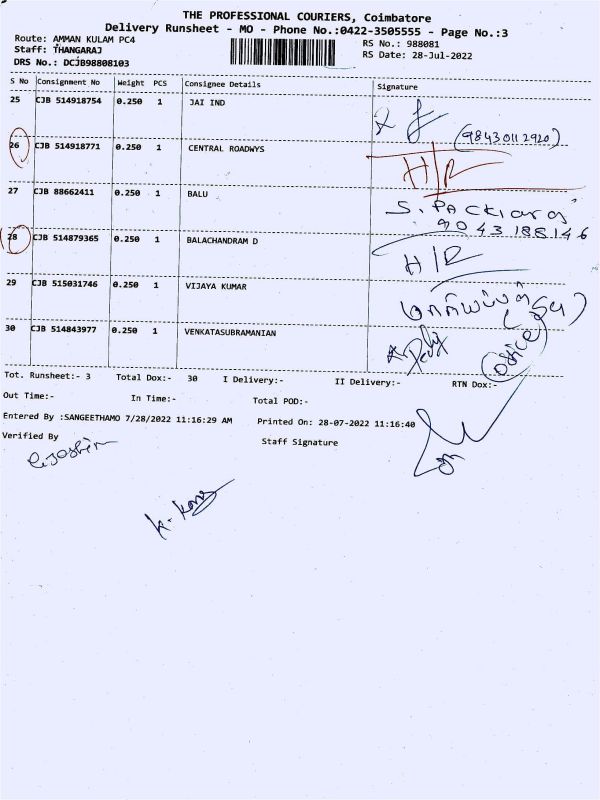 THE PROFESSIONAL COURIERS, Coimbatore
Delivery Runsheet - MO - Phone No.:0422-3505555 - Page No.:3
Route: AMMAN KULAM PC4
RS No.: 988081
Staff: THANGARAJ
RS Date: 28-Jul-2022
DRS No.: DCJB98808103
S No Consignment No Weight PCS Consignee Details Signature
25 CJB 514918754 0.250 1 JAI IND
(98430112920)
26 CJB 514918771 0.250 1 CENTRAL ROADWYS
H/R
27 CJB 88662411 0.250 1 BALU
S. PACKiaraj
9043188146
28 CJB 514879365 0.250 1 BALACHANDRAM D
H/R
29 CJB 515031746 0.250 1 VIJAYA KUMAR
30 CJB 514843977 0.250 1 VENKATASUBRAMANIAN
office
Tot. Runsheet:- 3 Total Dox:- 30 I Delivery:- II Delivery:- RTN Dox:-
Out Time:- In Time:- Total POD:-
Entered By :SANGEETHAMO 7/28/2022 11:16:29 AM Printed On: 28-07-2022 11:16:40
Verified By Staff Signature